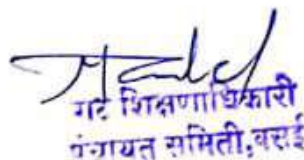 गट शिक्षणाधिकारी
पंचायत समिती, वसई